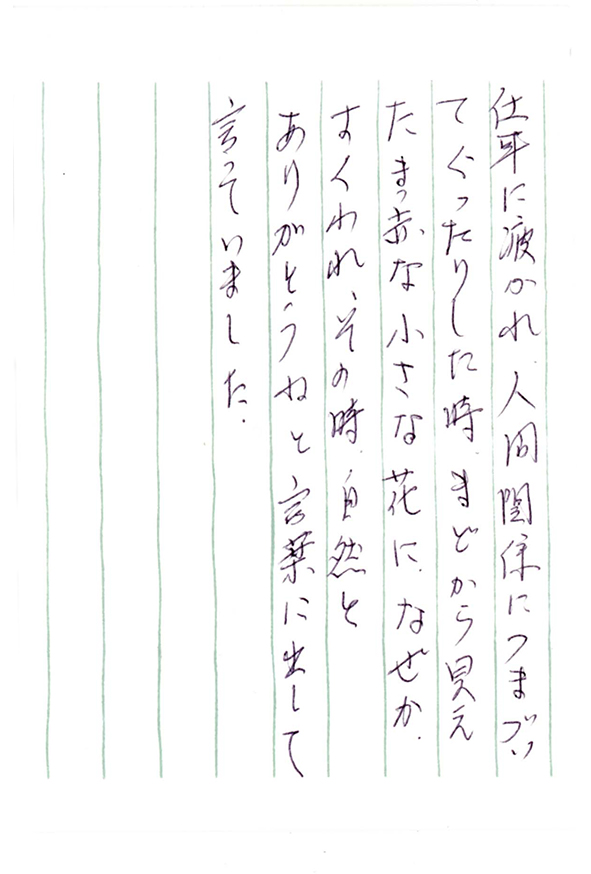 仕事に疲かれ、人間関係につまづい
てぐったりした時、まどから見え
たまっ赤な小さな花に、なぜか、
すくわれ、その時、自然と
ありがとうねと言葉に出して
言っていました。